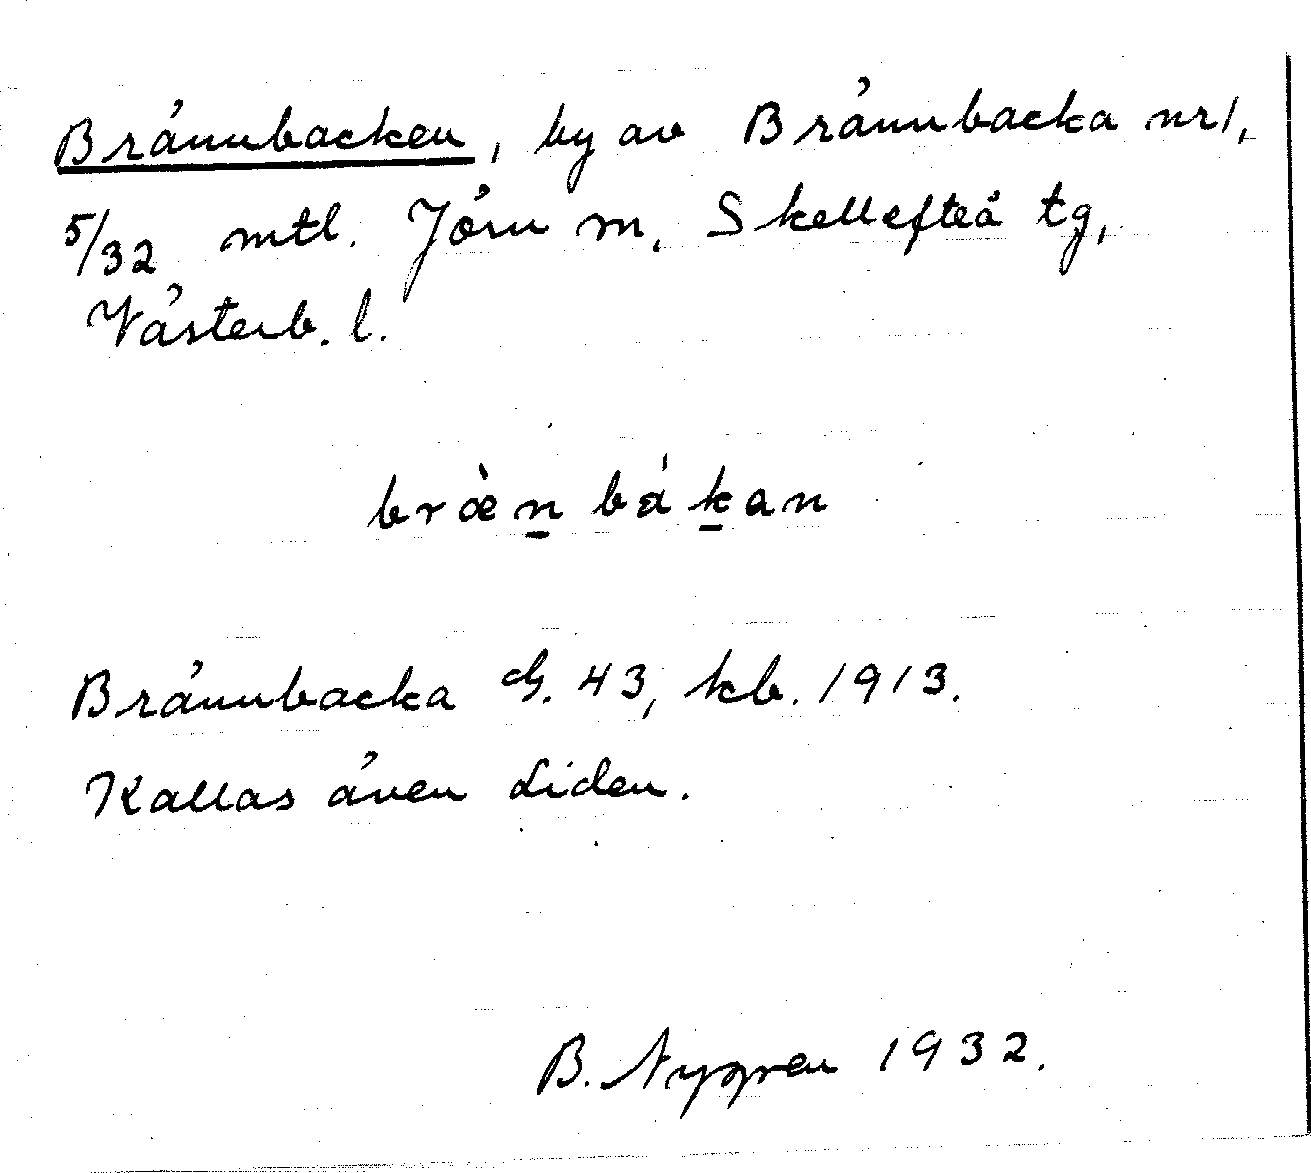 Brännbacken, by av Brännbacka nr 1,
5/32 mtl. Jörn sn, Skellefteå tg,
Västerb. l.
bræ̀n bákan
Brännbacka 43, kb. 1913.
Kallas även Liden.
B. Nygren 1932.